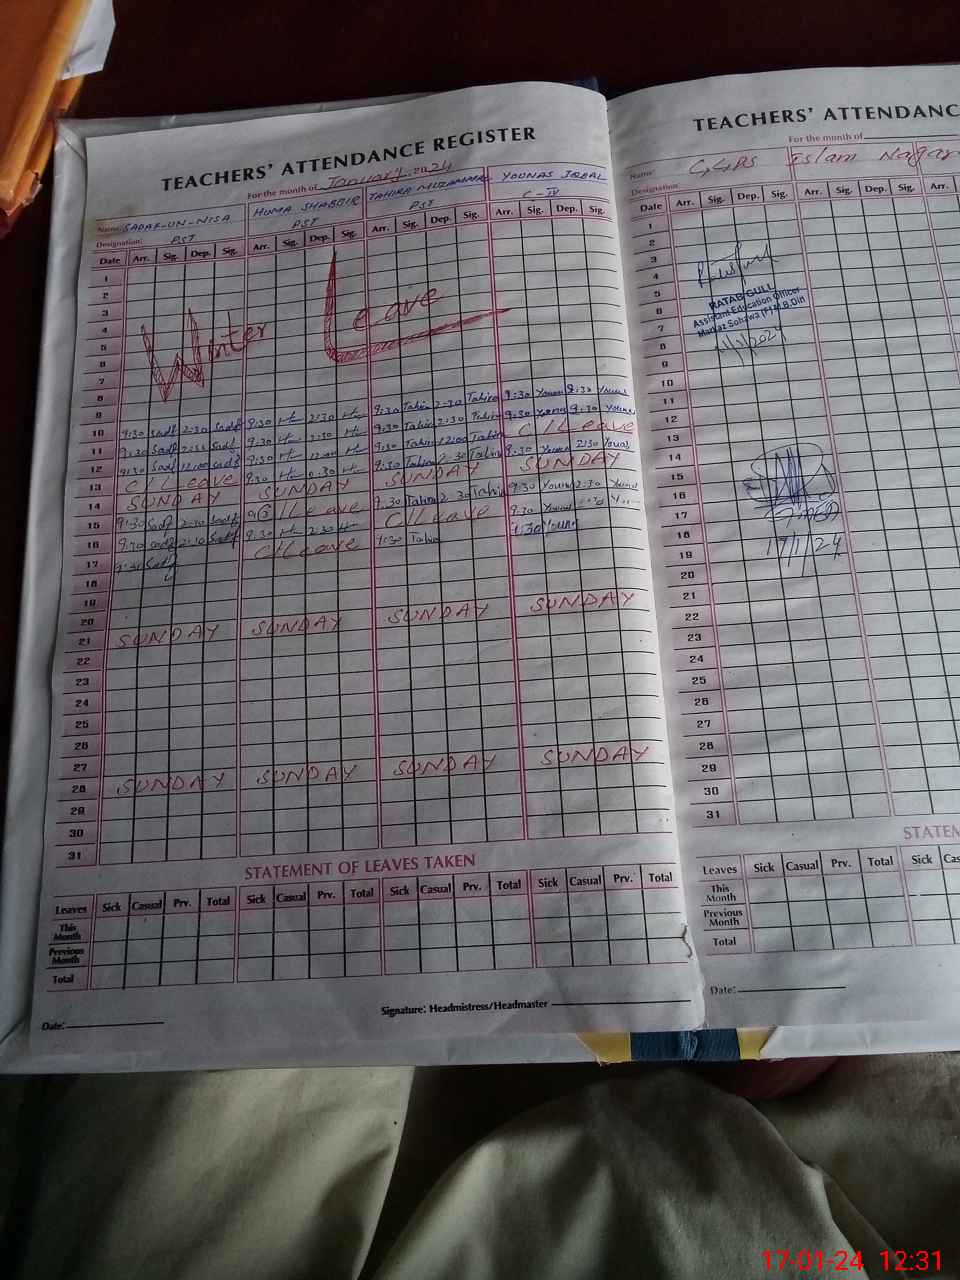 TEACHERS' ATTENDANCE REGISTER
For the month of January, 2024
Name: SADAF-UN-NISA HUMA SHABBIR TAHIRA MUZAMMAL YOUNAS IQBAL
Designation: PST PST PST C-IV
Date Arr. Sig. Dep. Sig. Arr. Sig. Dep. Sig. Arr. Sig. Dep. Sig. Arr. Sig. Dep. Sig.
1
2
3
4
5
6
7
Winter Leave
8
9
10 9:30 Sadf 2:30 Sadf 9:30 2:30 9:30 Tahir 2:30 Tahira 9:30 Youn 2:30 Younas
11 9:30 Sadf Sadf 9:30 2:30 9:30 Tahir 2:30 Tahira 9:30
12 9:30 Sadf 12:00 Sadf 9:30 12:00 9:30 Tahir 12:00 Tahira C/Leave
13 C/Leave 9:30 9:30 Tahir 2:30 Tahira 9:30 Younas 2:30 Younas
14 SUNDAY SUNDAY SUNDAY SUNDAY
15 9:30 Sadf 2:30 Sadf C/Leave 9:30 Tahir 2:30 Tahira 9:30 Youn 2:30 Younas
16 9:30 Sadf 2:30 Sadf 9:30 2:30 C/Leave 9:30 Younas
17 9:30 Sadf C/Leave 9:30 Tahir 9:30 Younas
18
19
20
21 SUNDAY SUNDAY SUNDAY SUNDAY
22
23
24
25
26
27
28 SUNDAY SUNDAY SUNDAY SUNDAY
29
30
31
STATEMENT OF LEAVES TAKEN
Leaves Sick Casual Prv. Total Sick Casual Prv. Total Sick Casual Prv. Total Sick Casual Prv. Total
This Month
Previous Month
Total
Date: Signature: Headmistress/Headmaster
TEACHERS' ATTENDANC
For the month of
Name: G.G.P.S Islam Nagar
Designation:
Date Arr. Sig. Dep. Sig. Arr. Sig. Dep. Sig. Arr.
1
2
3
4
5
6
7
RATAB GULL
Assistant Education Officer
Markaz Sohawa (F) M.B.Din
8
9
10
11
12
13
14
15
16
17
18
19
17/1/24
20
21
22
23
24
25
26
27
28
29
30
31
STATEM
Leaves Sick Casual Prv. Total Sick Cas
This Month
Previous Month
Total
Date:
17-01-24 12:31